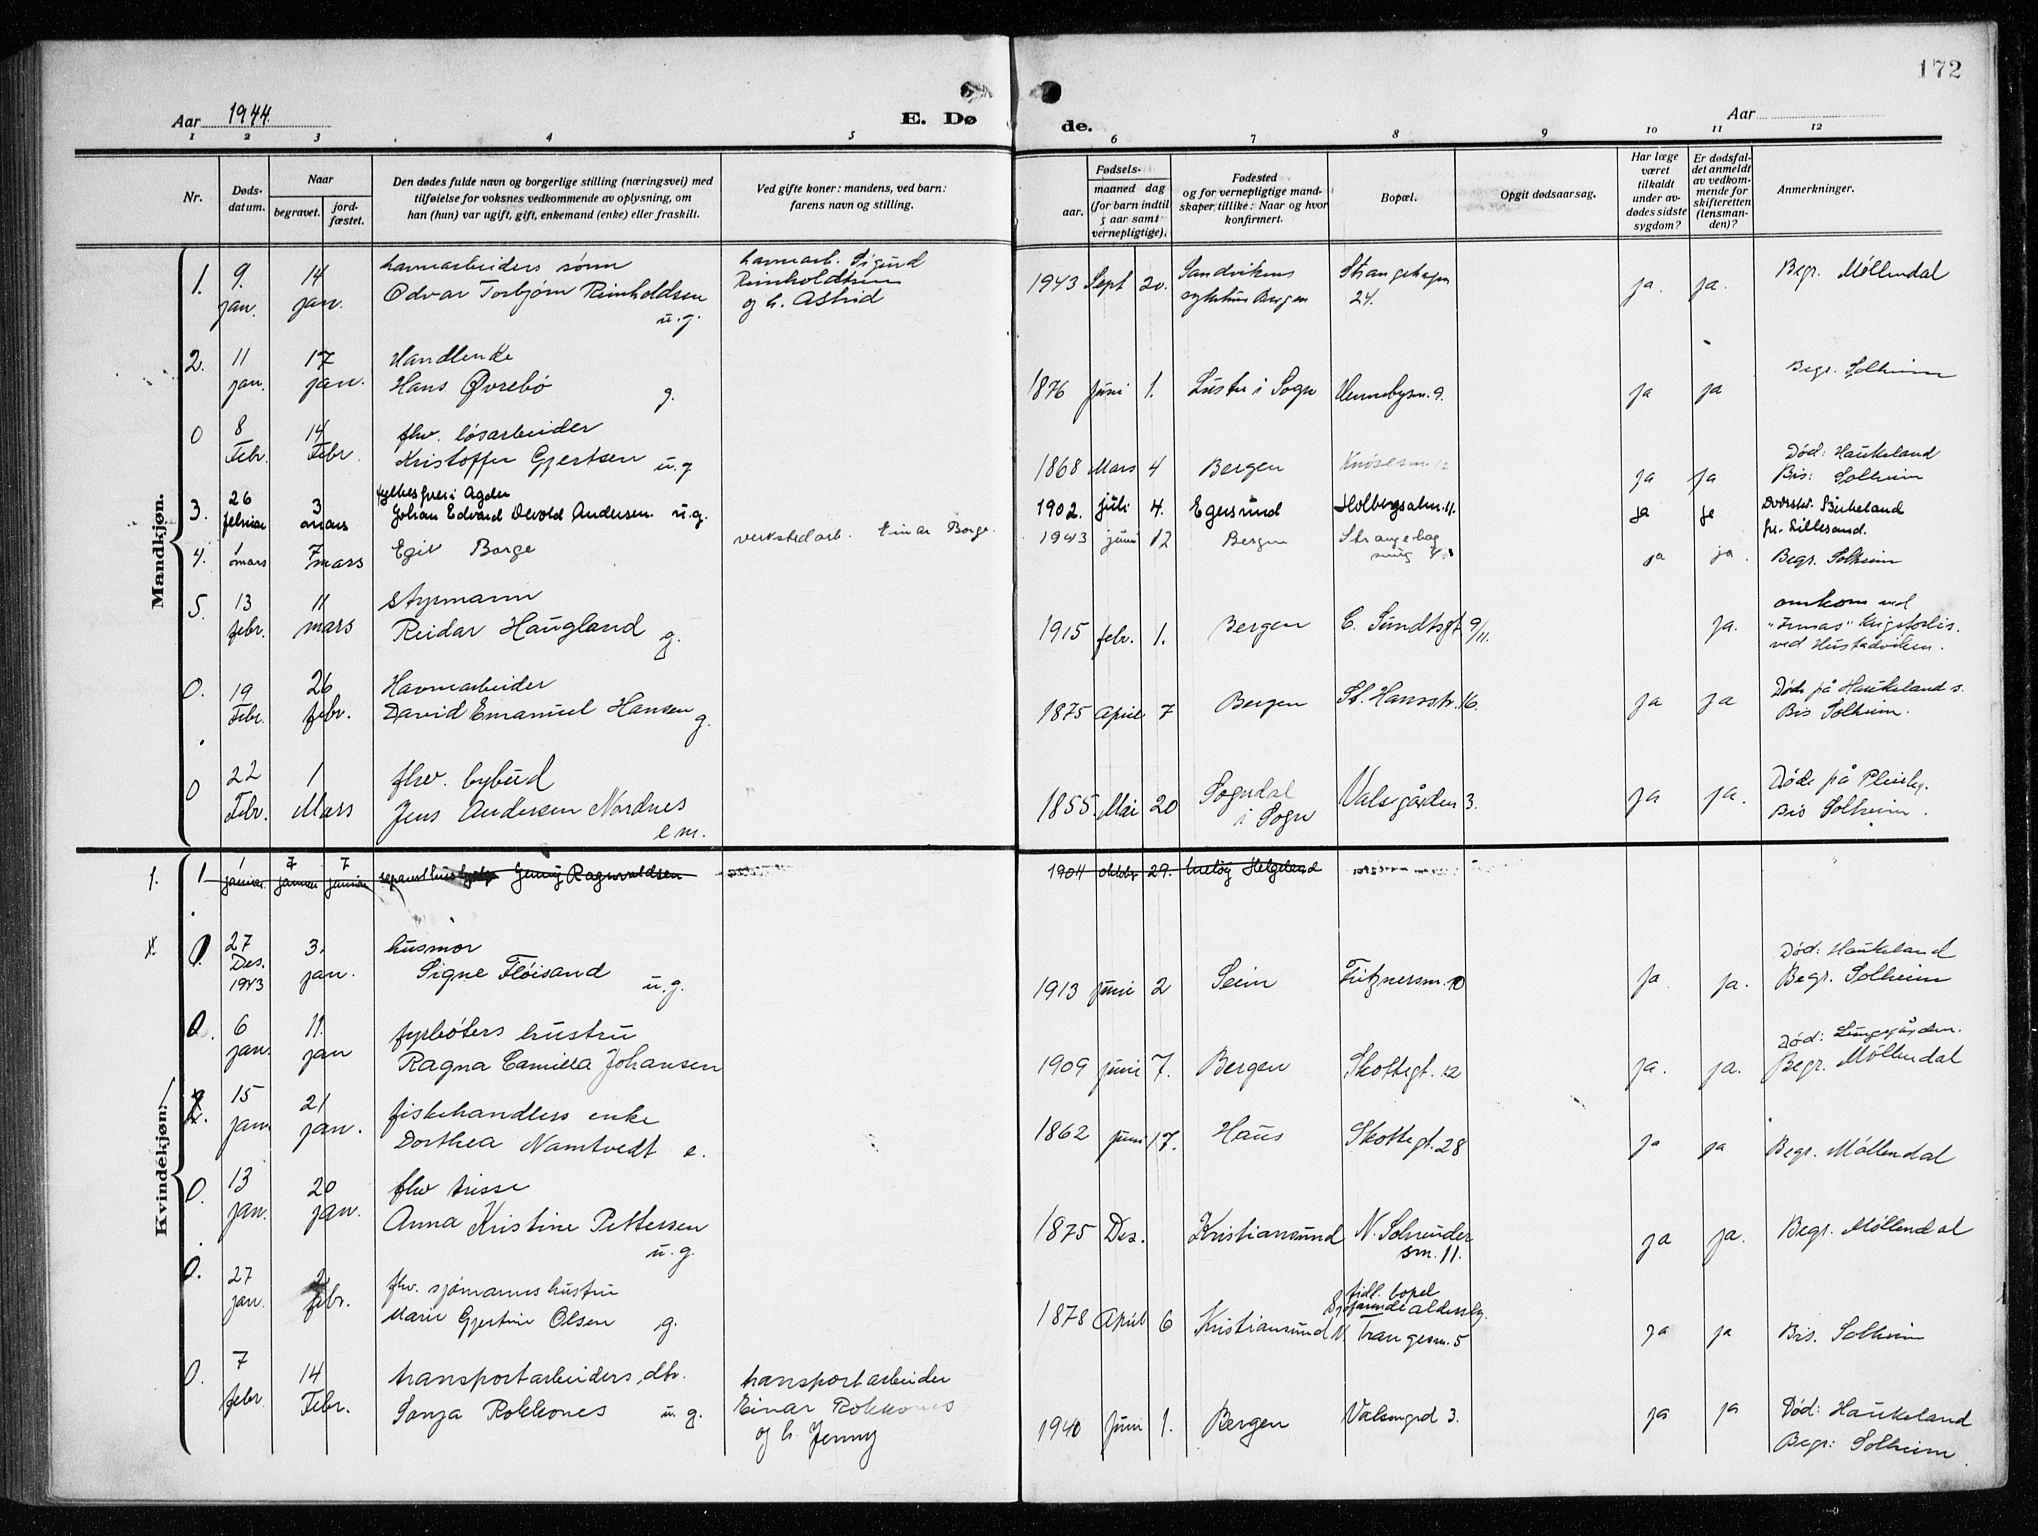 172
Aar 1944.
E. Dø
de.
Aar
1 2 3 4 5 6 7 8 9 10 11 12
Nr.
Døds-
datum.
Naar
begravet.
jord-
fæstet.
Den dødes fulde navn og borgerlige stilling (næringsvei) med
tilføielse for voksnes vedkommende av oplysning, om
han (hun) var ugift, gift, enkemand (enke) eller fraskilt.
Ved gifte koner: mandens, ved barn:
farens navn og stilling.
Fødsels-
aar.
maaned dag
(for barn indtil
5 aar samt
vernepligtige).
Fødested
og for vernepligtige mand-
skaper tillike: Naar og hvor
konfirmert.
Bopæl.
Opgit dødsaarsag.
Har læge
været
tilkaldt
under av-
dødes sidste
sygdom?
Er dødsfal-
det anmeldt
av vedkom-
mende for
skifteretten
(lensman-
den)?
Anmerkninger.
Mandkjøn.
1. 9. jan. 14 jan. havnearbeiders sønn
Odvar Torbjørn Reinholdsen
u.g.
havnearb. Sigurd
Reinholdtsen
og h. Astrid
1943 Sept 20. Sandvikens
sykehus Bergen
Strangehagen
24.
ja. ja. Begr. Møllendal
2. 11 jan. 17 jan. Handlende
Hans Øvrebø g.
1876 Juni 1. Luster i Sogn ja ja
Begr. Solheim
0 8 Febr. 14 Febr. fhv. løsarbeider
Kristoffer Gjertsen u.g
1868 Mars 4 Bergen ja ja
Død: Haukeland
Bis: Solheim
3. 26 februar 3 mars fylkesfrei i Agder
Johan Edvard Devold Andersen u.g.
1902. juli 4. Egersund Holbergsalm. 11. ja ja
Birkeland
pr. Lillesand.
4. 1 mars 7 mars Egil Borge
verkstedarb. Einar Borge
1943 juni 12 Bergen Strangehag
ja ja. Begr. Solheim
5. 13 febr. 11 mars styrmann
Reidar Haugland g.
1915 febr. 1. Bergen C. Sundtsgt 9/11. ja.
omkom ved
"Irmas" krigsforlis.
ved Hustadviken.
0. 19 Febr. 26 febr. Havnearbeider
David Emanuel Hansen g.
1875 April 7 Bergen St. Hansstr. 16. ja ja
Døde på Haukeland s.
Bis Solheim.
0 22 Febr. 1 Mars fhv. bybud
Jens Andersen Nordnes
e m.
1855. Mai 20 Sogndal
i Sogn
Valsegården 3. ja ja.
Døde på Pleiehj.
Bis Solheim.
Kvindekjøn.
1. 1 1 januar 7 januar 7 januar Jenny Ragnvaldsen
1904 oktobr 29. Meløy Helgeland
0. 27 Des. 1943 3. jan. husmor
Signe Fløisand u.g.
1913 juni 2 Seim Fritznersm. 10 ja ja.
Død: Haukeland
Begr. Solheim
0. 6 jan. 11. jan fyrbøters hustru
Ragna Camilla Johansen
1909 juni 7. Bergen Skottegt. 12 ja. ja.
Død: Lungegården.
Begr. Møllendal
2. 15 jan. 21 jan. fiskehandlers enke
Dorthea Namtvedt e.
1862 juni 17. Haus Skottegt. 28 ja ja
Begr. Møllendal
0. 13 jan. 20 jan. fhv
Anna Kristine Pettersen
u.g.
1875 Des. Kristiansund N. Schreuder
sm. 11. ja ja.
Begr. Møllendal
0. 27 jan. 2 febr. fhv. sjømanns hustru
Marie Gjertine Olsen g.
1878 April 6 Kristiansund N
tidl. bopel
Sjøfarende aldershj.
Trangesm. 5
ja ja Bis. Solheim
0. 7 febr 14 Febr. transportarbeiders dtr.
Sonja Rokkones u.g.
transportarbeider
Einar Rokkones
og h. Jenny
1940 Juni 1. Bergen Valsengrd 3. ja ja
Død: Haukeland
Begr: Solheim.